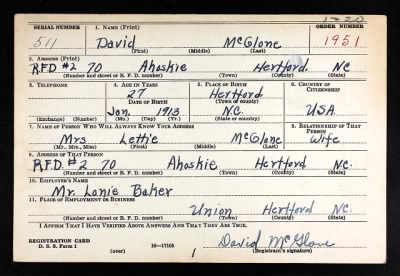 SERIAL NUMBER 1. NAME (Print) ORDER NUMBER
511 David McGlone 1951
(First) (Middle) (Last)
2. ADDRESS (Print)
RFD #2 70 Ahoskie Hertford NC
(Number and street or R. F. D. number) (Town) (County) (State)
3. TELEPHONE 4. AGE IN YEARS 5. PLACE OF BIRTH 6. COUNTRY OF CITIZENSHIP
27 Hertford
DATE OF BIRTH (Town or county)
Jan. 1913 N.C. USA
(Exchange) (Number) (Mo.) (Day) (Yr.) (State or country)
7. NAME OF PERSON WHO WILL ALWAYS KNOW YOUR ADDRESS 8. RELATIONSHIP OF THAT PERSON
Mrs Lettie McGlone Wife
(Mr., Mrs., Miss) (First) (Middle) (Last)
9. ADDRESS OF THAT PERSON
RFD #2 70 Ahoskie Hertford NC.
(Number and street or R. F. D. number) (Town) (County) (State)
10. EMPLOYER'S NAME
Mr. Lonie Baker
11. PLACE OF EMPLOYMENT OR BUSINESS
Union Hertford NC.
(Number and street or R. F. D. number) (Town) (County) (State)
I AFFIRM THAT I HAVE VERIFIED ABOVE ANSWERS AND THAT THEY ARE TRUE.
REGISTRATION CARD
D. S. S. Form 1 16—17105 David McGlone
(over) (Registrant's signature)